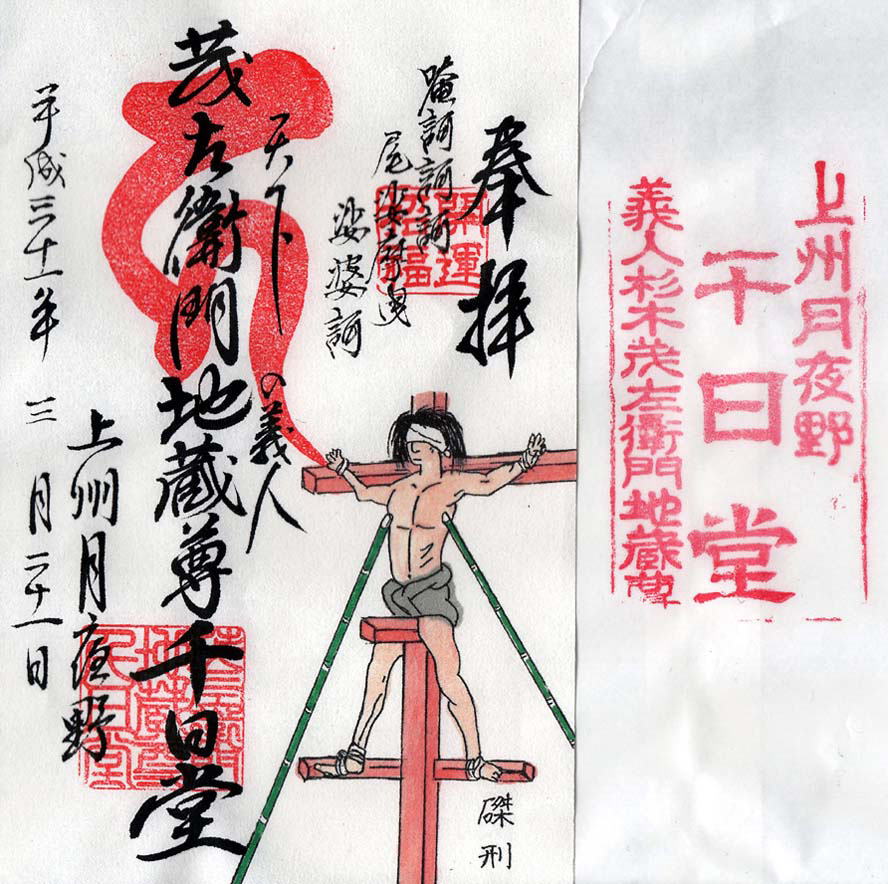 上州月夜野
千日堂
義人杉木茂左衛門地蔵尊
奉拝
唵訶訶訶
尾娑麼曳
娑婆訶
開運
招福
天下の義人
茂左衛門地蔵尊千日堂
上州月夜野
平成三十一年三月二十一日
茂左衛門
地蔵尊
千日堂
磔刑